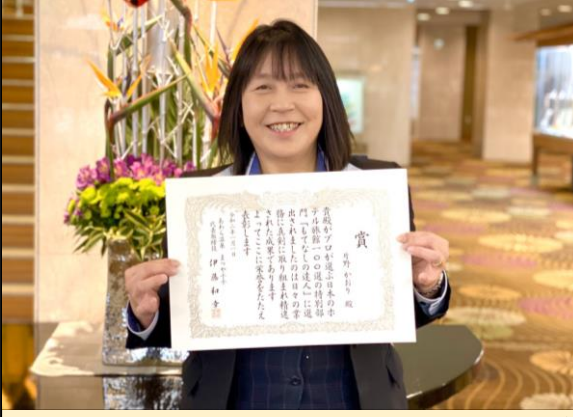 賞
月野 かおり 殿
貴殿がプロが選ぶ日本のホ
テル旅館一〇〇選の特別部
門『もてなしの達人』に選
出されましたのは日々の業
務に真剣に取り組まれ精進
された成果であります
よってここに栄誉をたたえ
表彰します
令和二年一月一日
代表取締役 伊藤 和幸